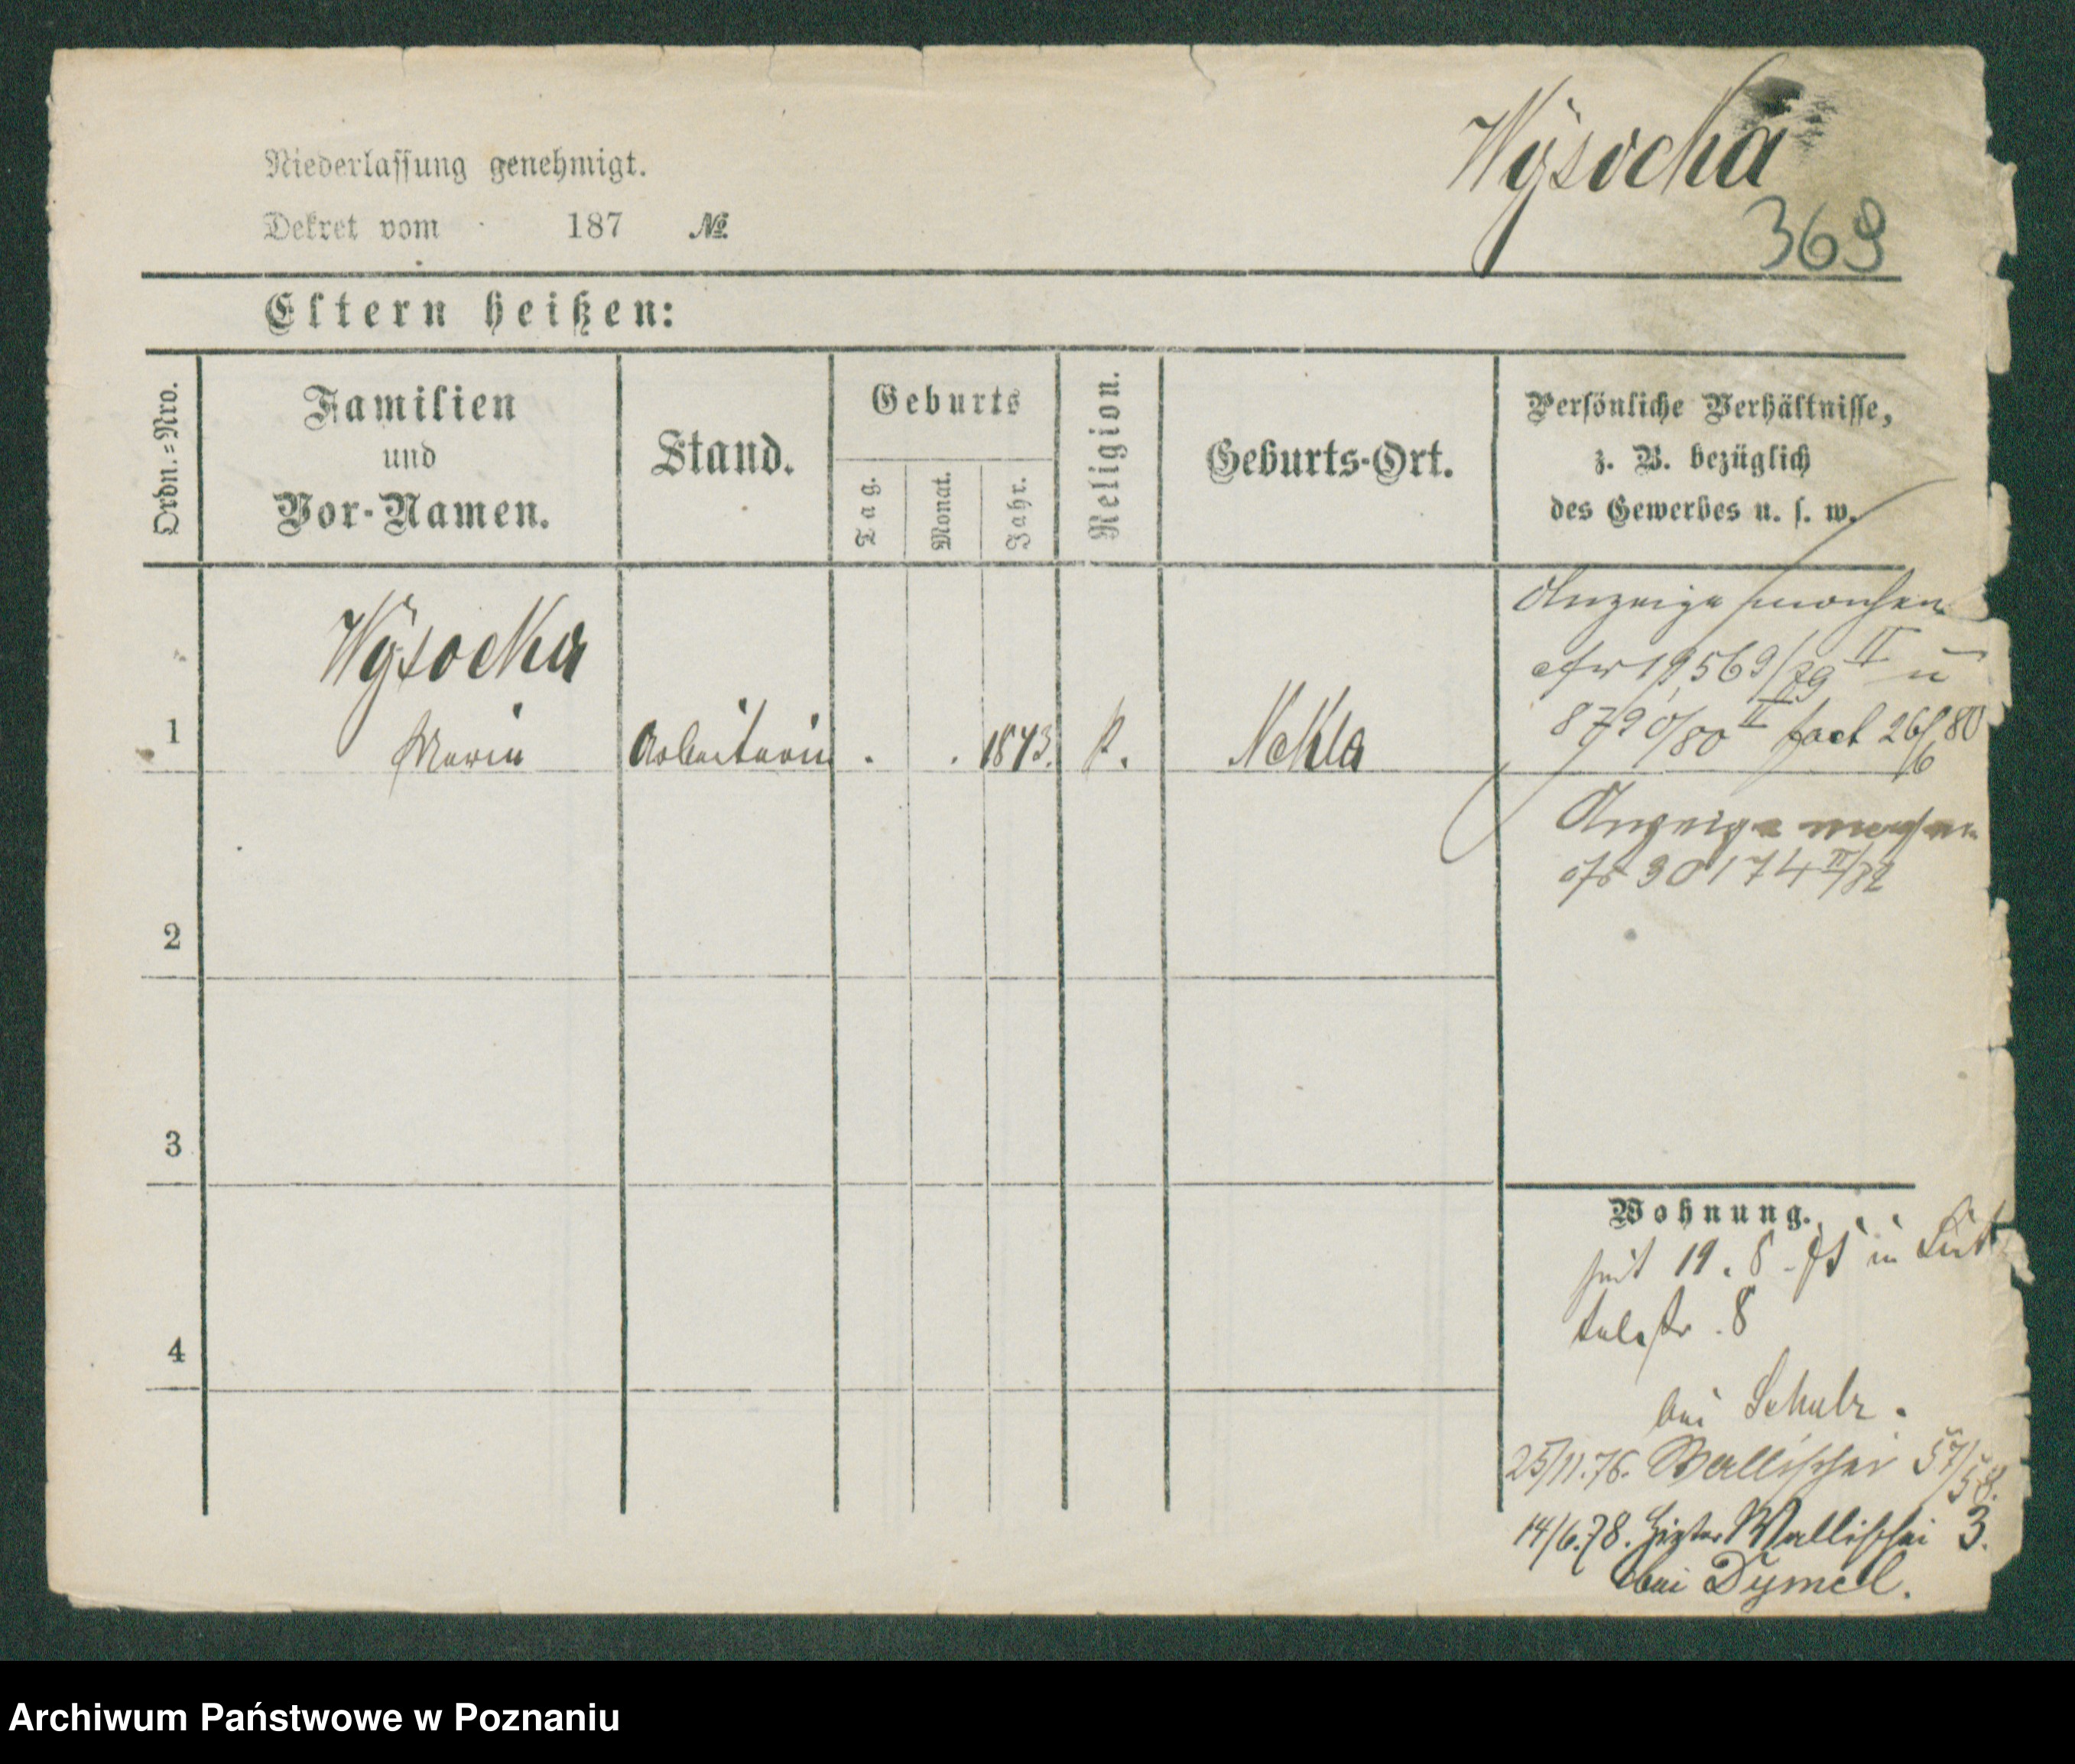 Wysocka
369
Niederlassung genehmigt.
Dekret vom 187 №
Eltern heißen:
Ordn.=Nro.
Familien
und
Vor-Namen.
Stand.
Geburts
Tag.
Monat.
Jahr.
Religion.
Geburts-Ort.
Persönliche Verhältnisse,
z. B. bezüglich
des Gewerbes u. s. w.
1
Wysocka
Marie
Arbeiterin
1873.
k.
Nekla
Anzeige
19569/79 II u
8790/80 II fact 26/6 80
Anzeige
30174 II/82
2
3
4
Wohnung.
seit 19. 8. in
str. 8
bei Schulz.
25/11.76. Wallischei 57/58.
14/6.78. Hinter Wallischei 3.
bei Dymel.
Archiwum Państwowe w Poznaniu